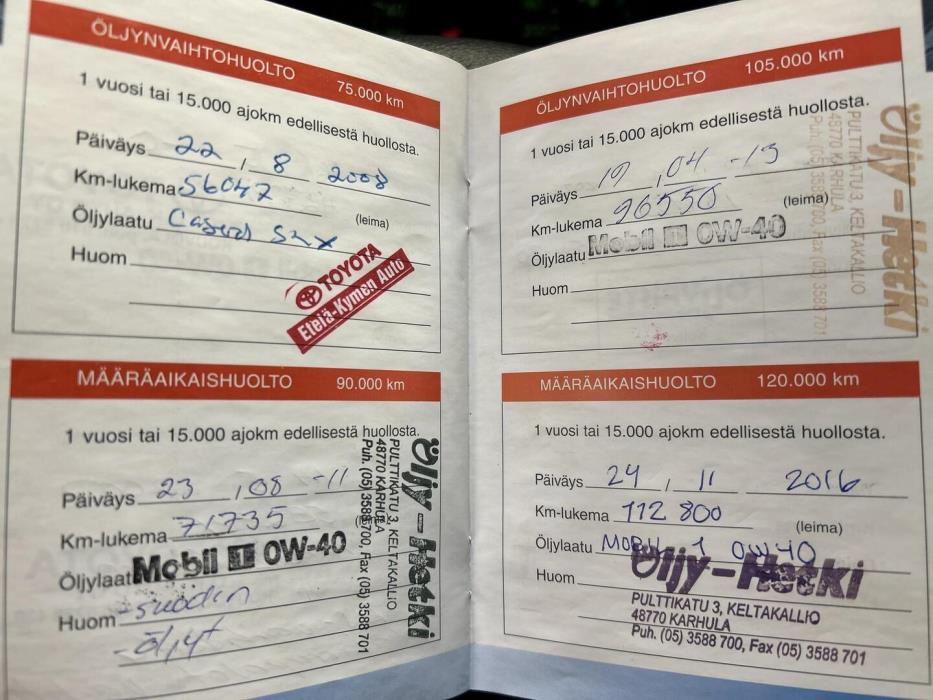 ÖLJYNVAIHTOHUOLTO 75.000 km
1 vuosi tai 15.000 ajokm edellisestä huollosta.
Päiväys 22 / 8 2008
Km-lukema 56047
Öljylaatu (leima)
Huom
TOYOTA
Etelä-Kymen Auto
MÄÄRÄAIKAISHUOLTO 90.000 km
1 vuosi tai 15.000 ajokm edellisestä huollosta.
Päiväys 23 / 08 -11
Km-lukema 71735
Öljylaatu Mobil 1 0W-40
Huom -suodin
-öljyt
Öljy-Hetki
PULTTIKATU 3, KELTAKALLIO
48770 KARHULA
Puh. (05) 3588 700, Fax (05) 3588 701
ÖLJYNVAIHTOHUOLTO 105.000 km
1 vuosi tai 15.000 ajokm edellisestä huollosta.
Päiväys 19 / 04 -13
Km-lukema 96550 (leima)
Öljylaatu Mobil 1 0W-40
Huom
Öljy-Hetki
PULTTIKATU 3, KELTAKALLIO
48770 KARHULA
Puh. (05) 3588 700, Fax (05) 3588 701
MÄÄRÄAIKAISHUOLTO 120.000 km
1 vuosi tai 15.000 ajokm edellisestä huollosta.
Päiväys 24 / 11 2016
Km-lukema 112 800 (leima)
Öljylaatu MOBIL 1 0W40
Huom
Öljy-Hetki
PULTTIKATU 3, KELTAKALLIO
48770 KARHULA
Puh. (05) 3588 700, Fax (05) 3588 701